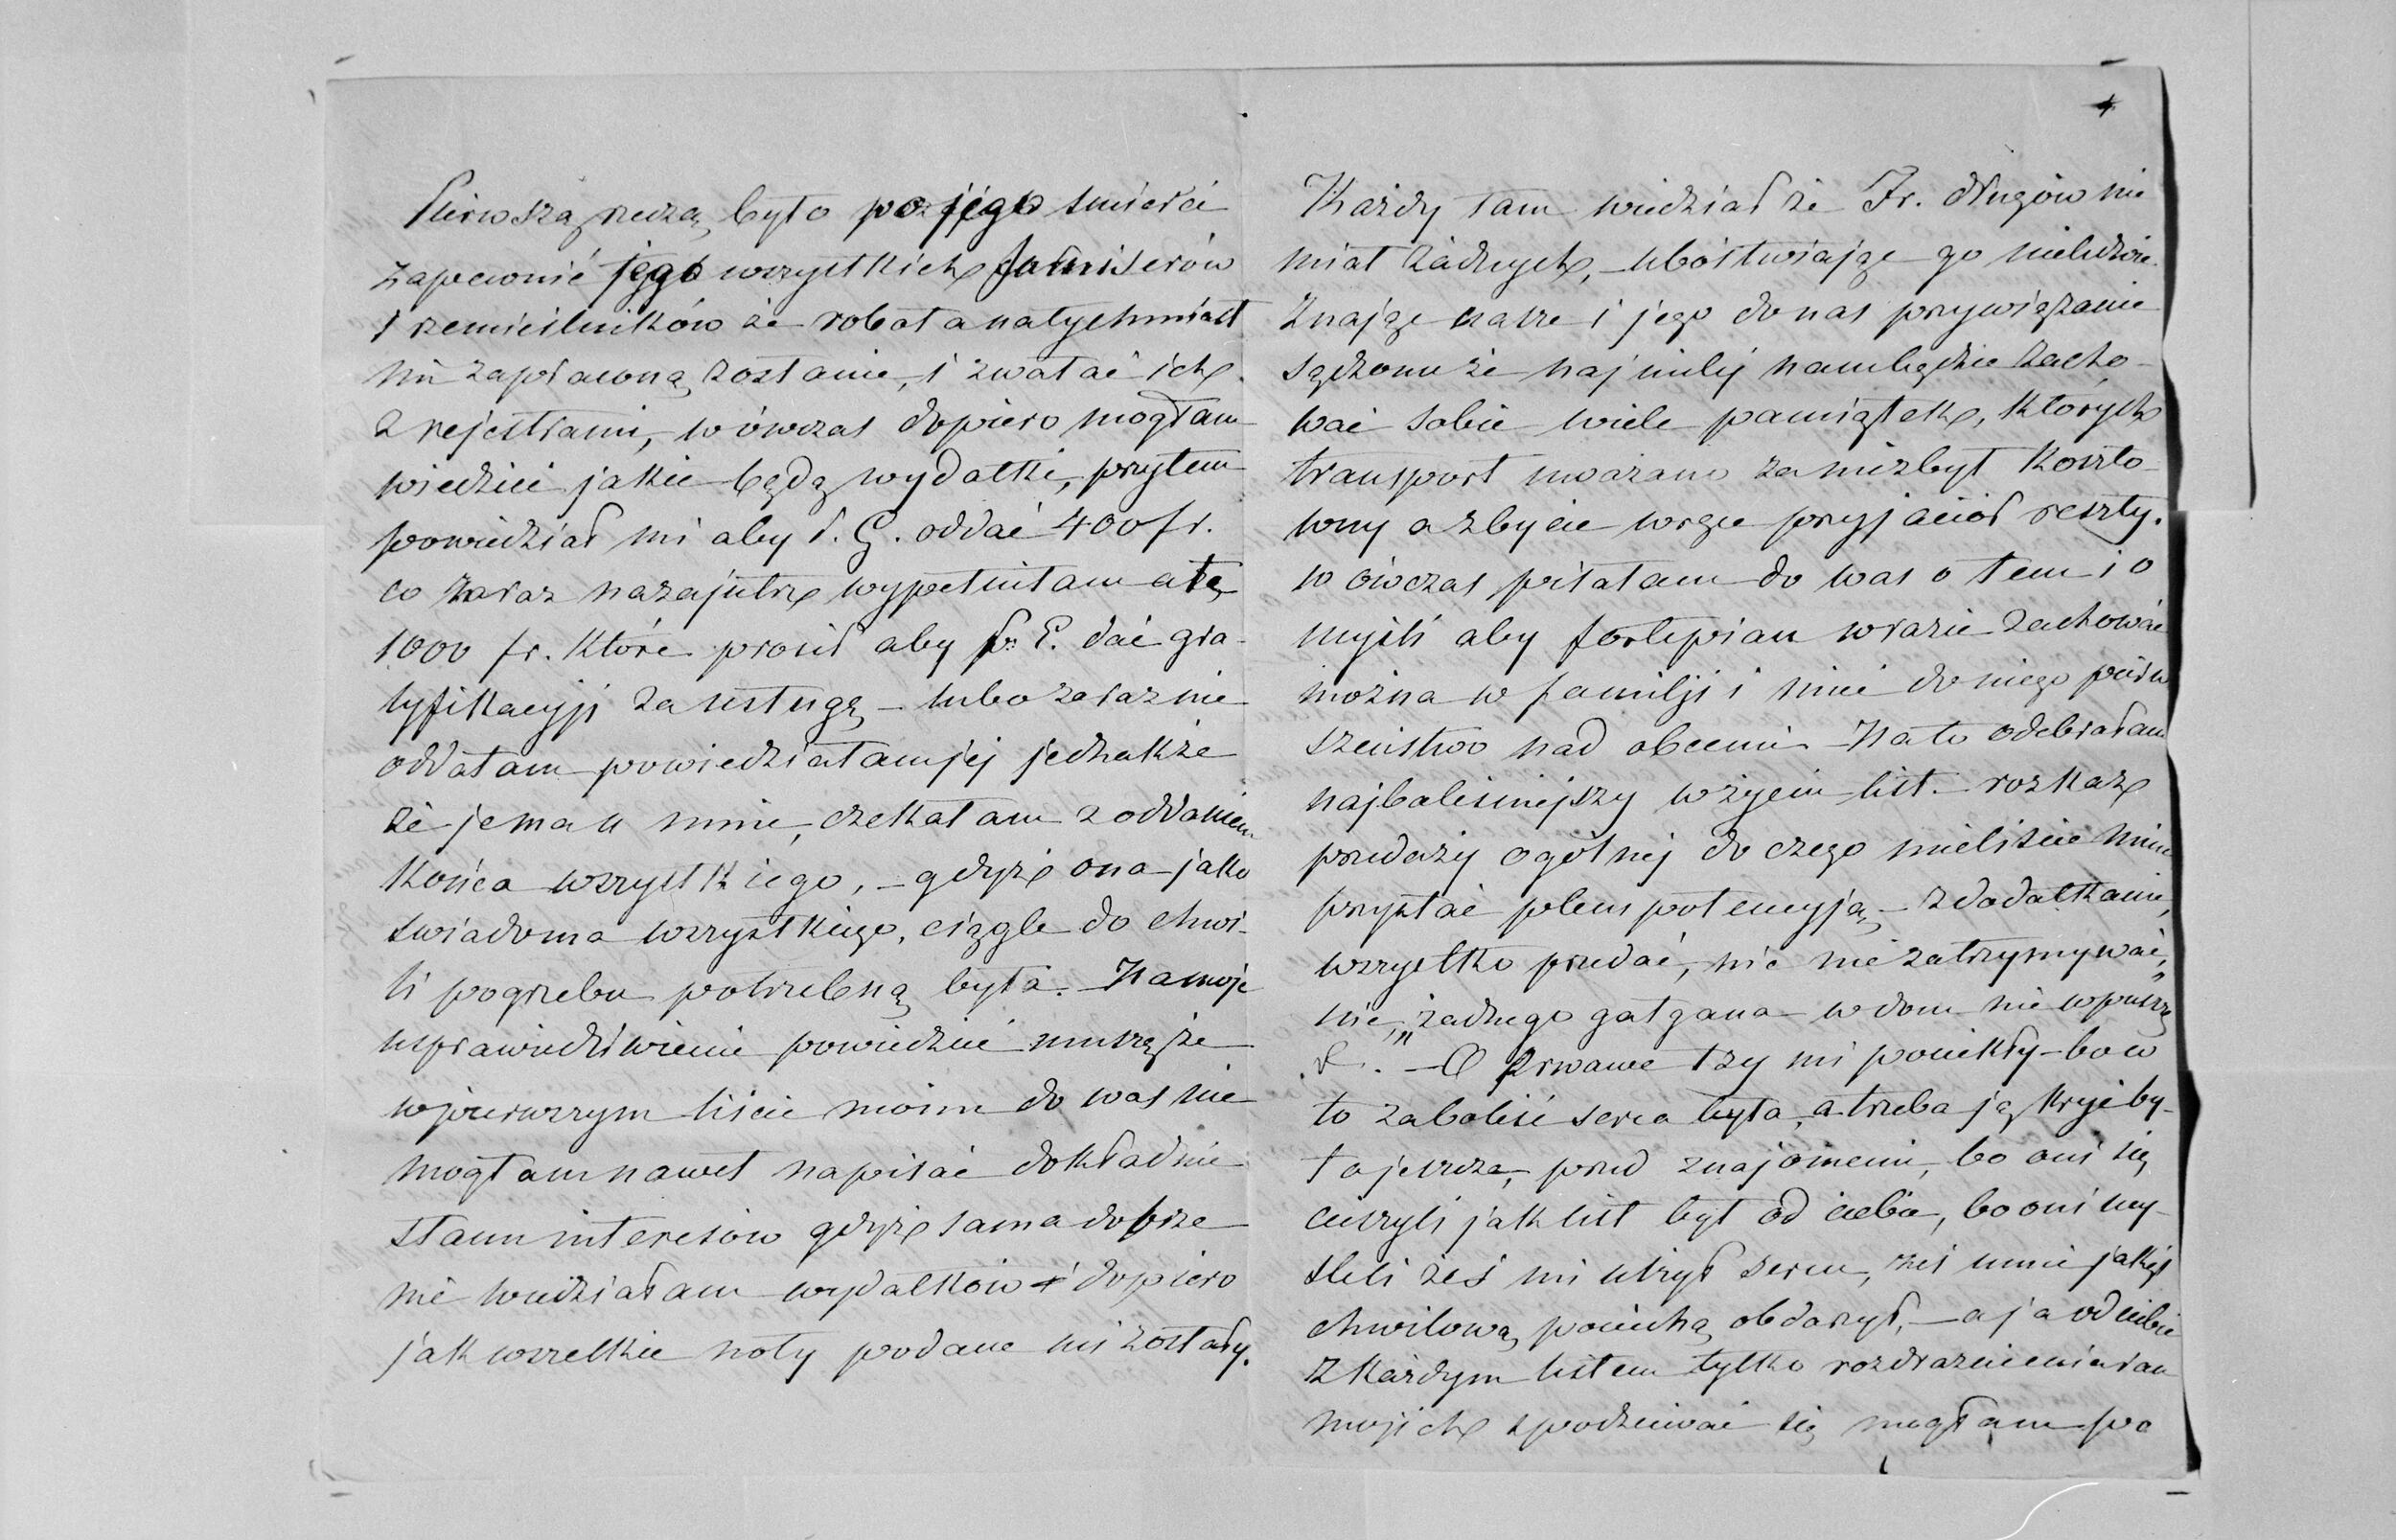 Pierwszą rzeczą było po jego śmierci
zapewnić jego wszystkich furniserów
i rzemieślników że robota natychmiast
nie zapłaconą zostanie, i zwołać ich
z rejestrami, wówczas dopiero mogłam
wiedzieć jakie będą wydatki, przytem
powiedział mi aby P. G. oddać 400 fr.
co zaraz nazajutrz wypełniłam a te
1000 fr. które prosił aby p. E. dać gra-
tyfikacyji za usługę – lubo zaraz nie
oddałam powiedziałam jej jednakże
że je ma u mnie, czekałam z oddaniem
końca wszystkiego, – gdyż ona jako
świadoma wszystkiego, ciągle do chwi-
li pogrzebu potrzebną była. Na moje
usprawiedliwienie powiedzieć muszę że
w pierwszym liście moim do was nie
mogłam nawet napisać dokładnie
stanu interesów gdyż sama dobrze
nie wiedziałam wydatków i dopiero
jak wszelkie noty podane mi zostały.
Każdy tam wiedział że Fr. długów nie
miał żadnych, – ubóstwiając go nieludzie
znając nasze i jego do nas przywiązanie
sądzono że najmilej nam będzie zacho-
wać sobie wiele pamiątek, których
transport uważano za niezbyt koszto-
wny a zbycie w ręce przyjaciół reszty.
wówczas pisałam do was o tem i o
myśli aby fortepian w razie zachować
można w familji i mieć do niego pierw
szeństwo nad obcemi – Na to odebrałam
najboleśniejszy w życiu list – rozkaz
przedaży ogólnej do czego mieliście mnie
przysłać plenipotencyją – z dodatkami,
wszystko przedać, nic nie zatrzymywać,
nie, „żadnego gałgana w dom nie wpuszczę”
&. – O krwawe łzy mi pociekły – bo w
to zaboleć serca była, a trzeba ją kryć by-
ło jeszcze, przed znajomemi, bo oni się
cieszyli jak list był od ciebie, bo oni my-
śleli żeś mi ulżył sercu, żeś mnie jakąś
chwilową pociechą obdarzył, – a ja od ciebie
z każdym listem tylko rozdrażnienia ran
mojich spodziewać się mogłam po